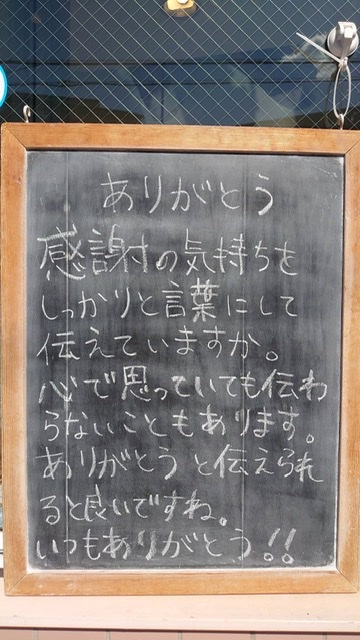 ありがとう
感謝の気持ちを
しっかりと言葉にして
伝えていますか。
心で思っていても伝わ
らないこともあります。
ありがとうと伝えられ
ると良いですね。
いつもありがとう!!